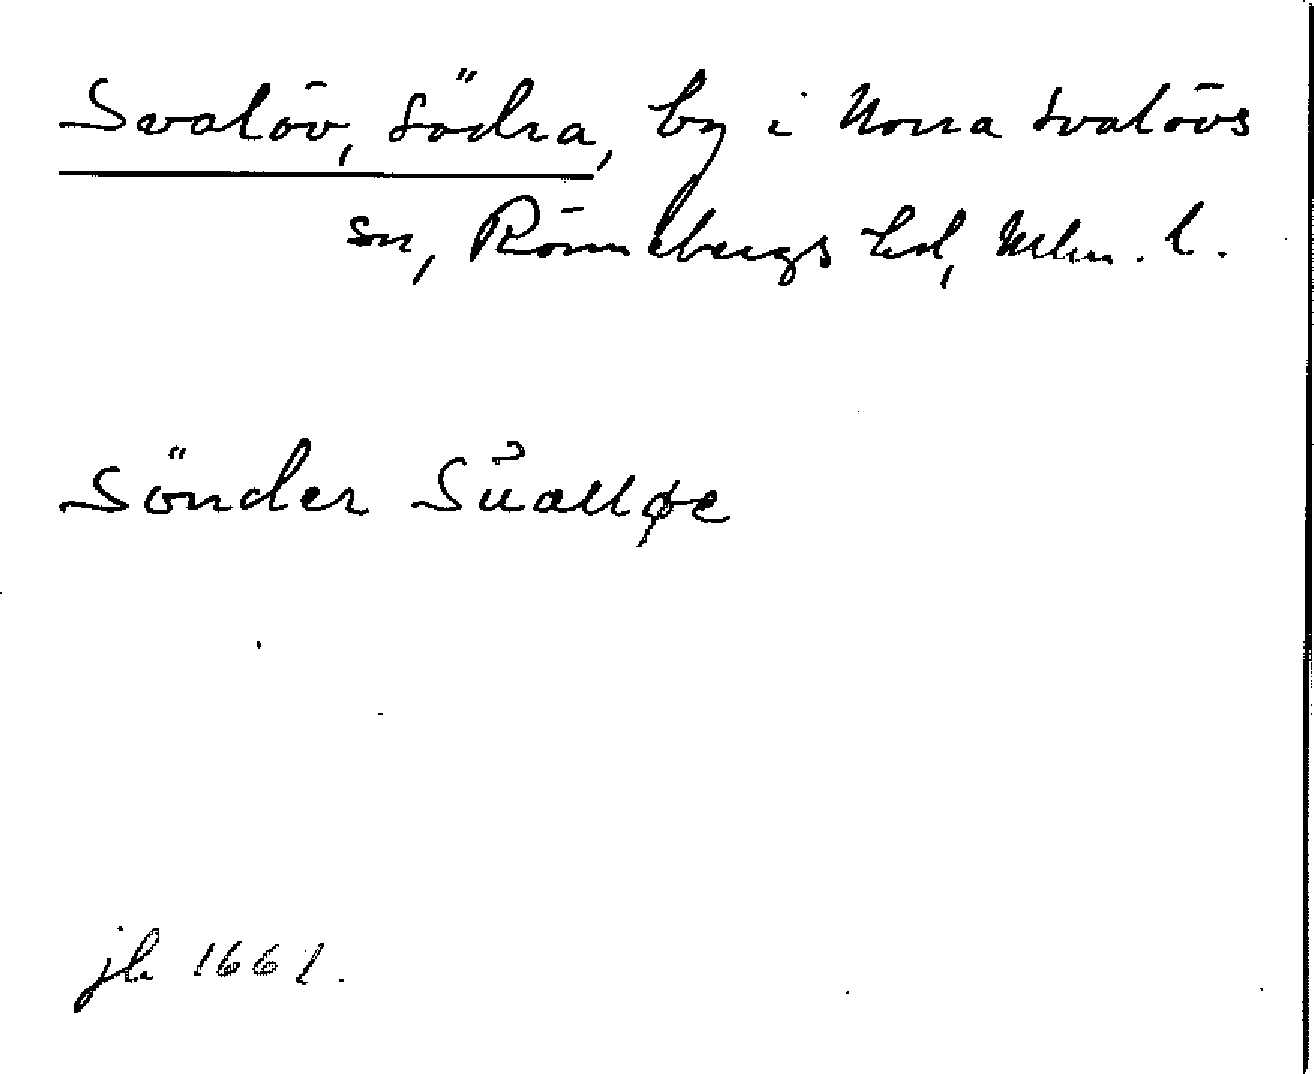 Svalöv, Södra, by i Norra Svalövs
sn, Rönnebergs hd, Mlm. l.
Sönder Sŭalløe
jb 1661.